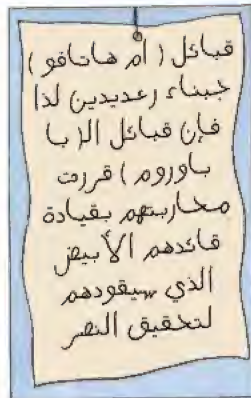 قبائل ( ام هاتافو )
جبناء رعديدين لذا
فإن قبائل الـ( با
باوروم ) قررت
محاربتهم بقيادة
قائدهم الأبيض
الذي سيقودهم
لتحقيق النصر